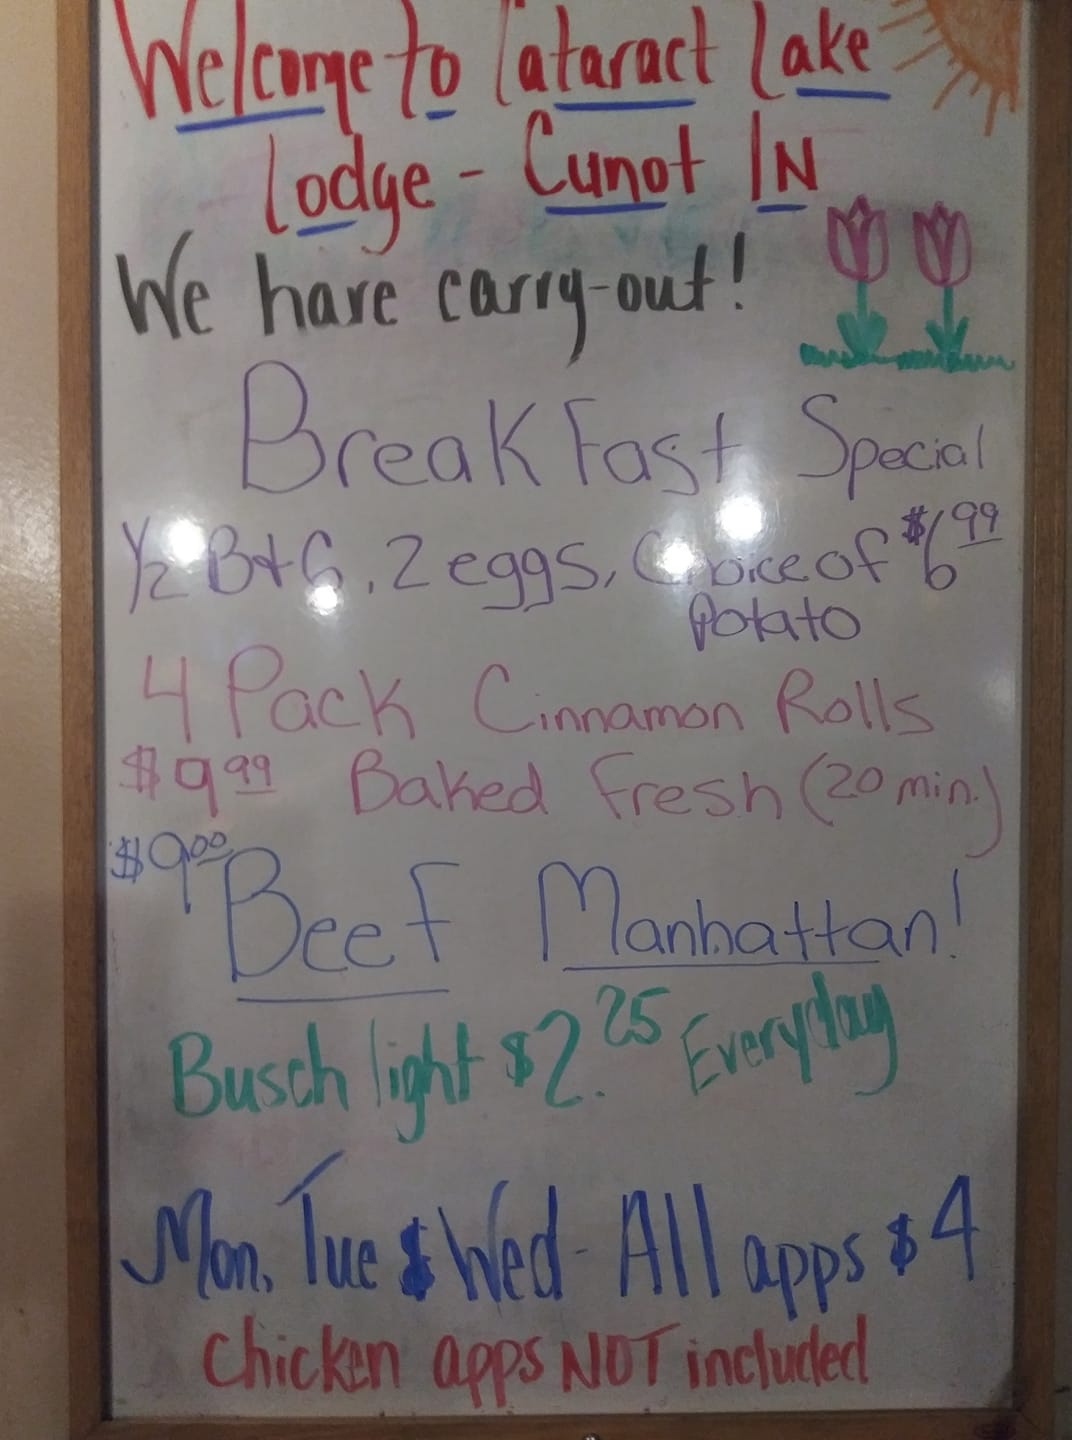 Welcome to Cataract Lake
Lodge - Cunot IN
We have carry-out!
BreakFast Special
1/2 B+G, 2 eggs, Choice of $6 99
Potato
4 Pack Cinnamon Rolls
$9 99 Baked Fresh (20 min.)
$9 00
Beef Manhattan!
Busch light $2. 25 Everyday
Mon, Tue & Wed - All apps $4
Chicken apps NOT included